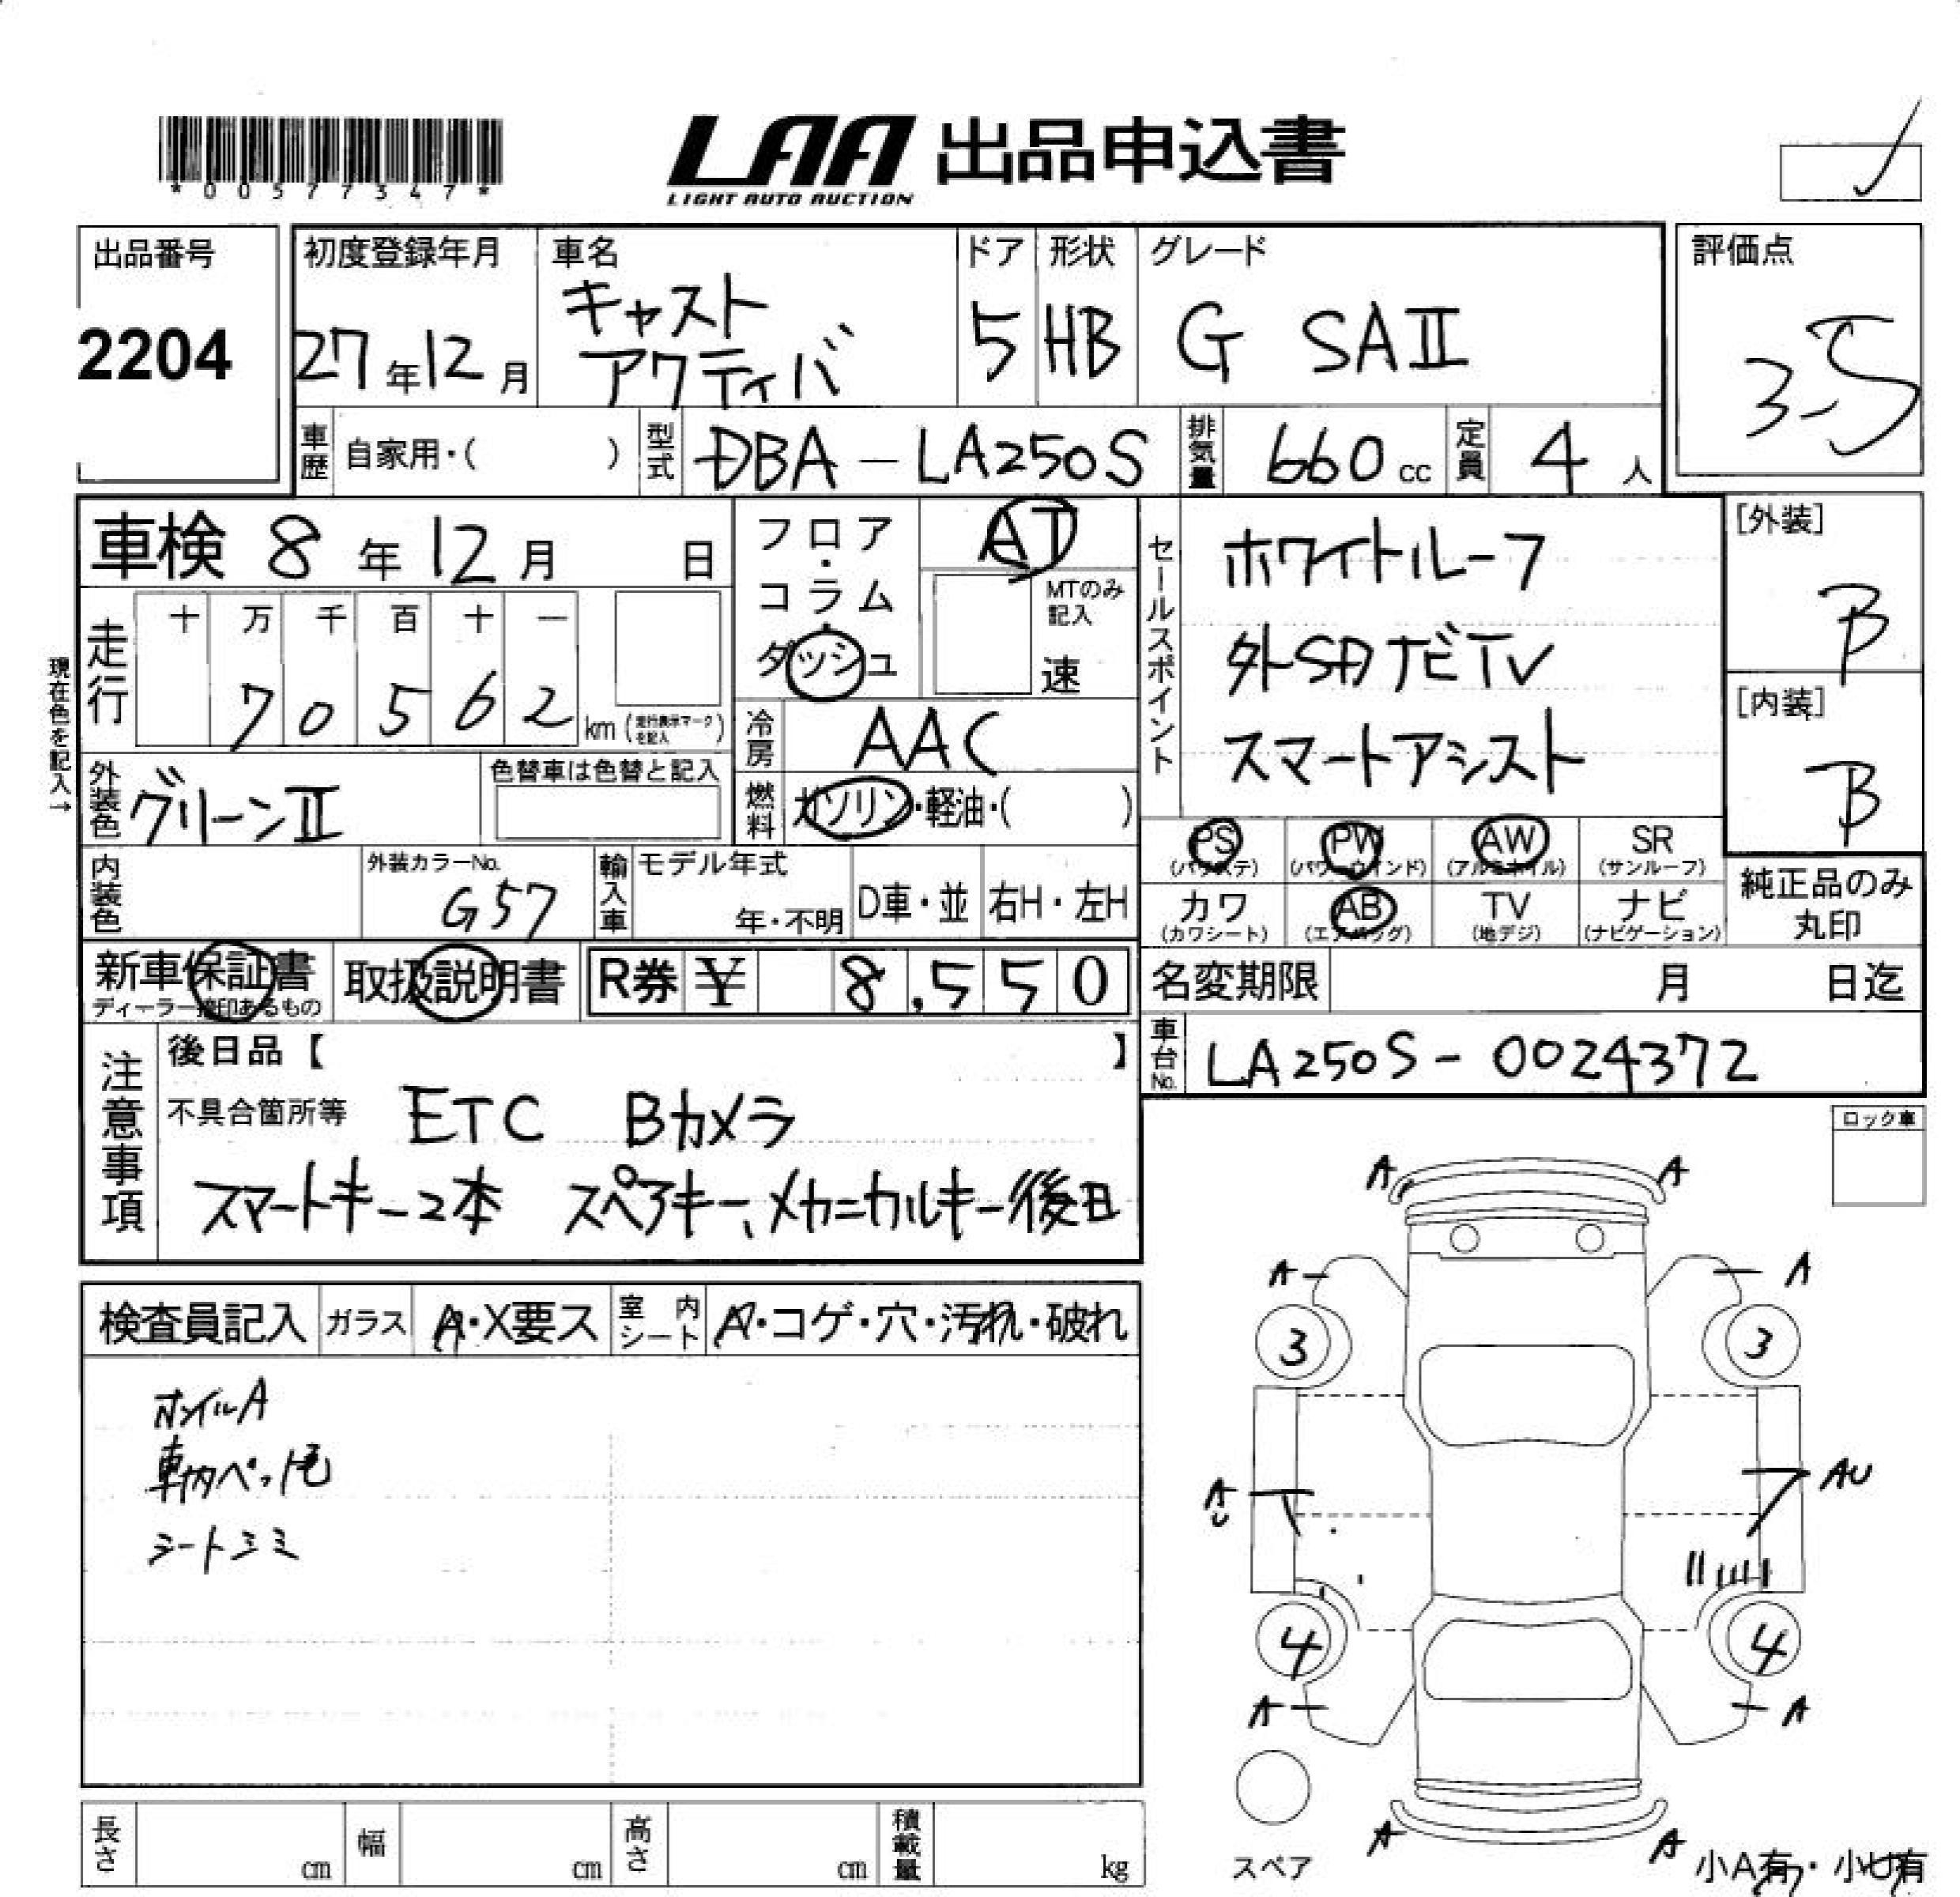 *00577347*
LAA 出品申込書
LIGHT AUTO AUCTION
出品番号
2204
初度登録年月
27年12月
車名
キャスト
アクティバ
ドア
5
形状
HB
グレード
G SAⅡ
評価点
3.5
車歴
自家用・( )
型式
DBA-LA250S
排気量
660 cc
定員
4 人
車検 8年12月 日
フロア・
コラム・
ダッシュ
AT
MTのみ
記入
速
セールスポイント
ホワイトルーフ
外SDナビTV
スマートアシスト
[外装]
B
[内装]
B
現在色を記入→
走行
十 万 千 百 十 一
7 0 5 6 2
km (走行表示マークを記入)
冷房
AAC
外装色
グリーンⅡ
色替車は色替と記入
燃料
ガソリン・軽油・( )
PS
(パワステ)
PW
(パワーウインド)
AW
(アルミホイル)
SR
(サンルーフ)
カワ
(カワシート)
AB
(エアバッグ)
TV
(地デジ)
ナビ
(ナビゲーション)
純正品のみ
丸印
内装色
外装カラーNo.
G57
輸入車
モデル年式
年・不明
D車・並
右H・左H
新車保証書
ディーラー捺印あるもの
取扱説明書
R券 ¥ 8,550
名変期限 月 日迄
車台No.
LA250S-0024372
注意事項
後日品【 】
不具合箇所等 ETC Bカメラ
スマートキー2本 スペアキー、メカニカルキー後日
ロック車
検査員記入
ガラス
A・X要ス
室内
シート
A・コゲ・穴・汚れ・破れ
ホイルA
車内ペット毛
シートシミ
A A
A A
3 3
AU AU
4 4
A A
A A
スペア
小A有・小U有
長さ cm
幅 cm
高さ cm
積載量 kg